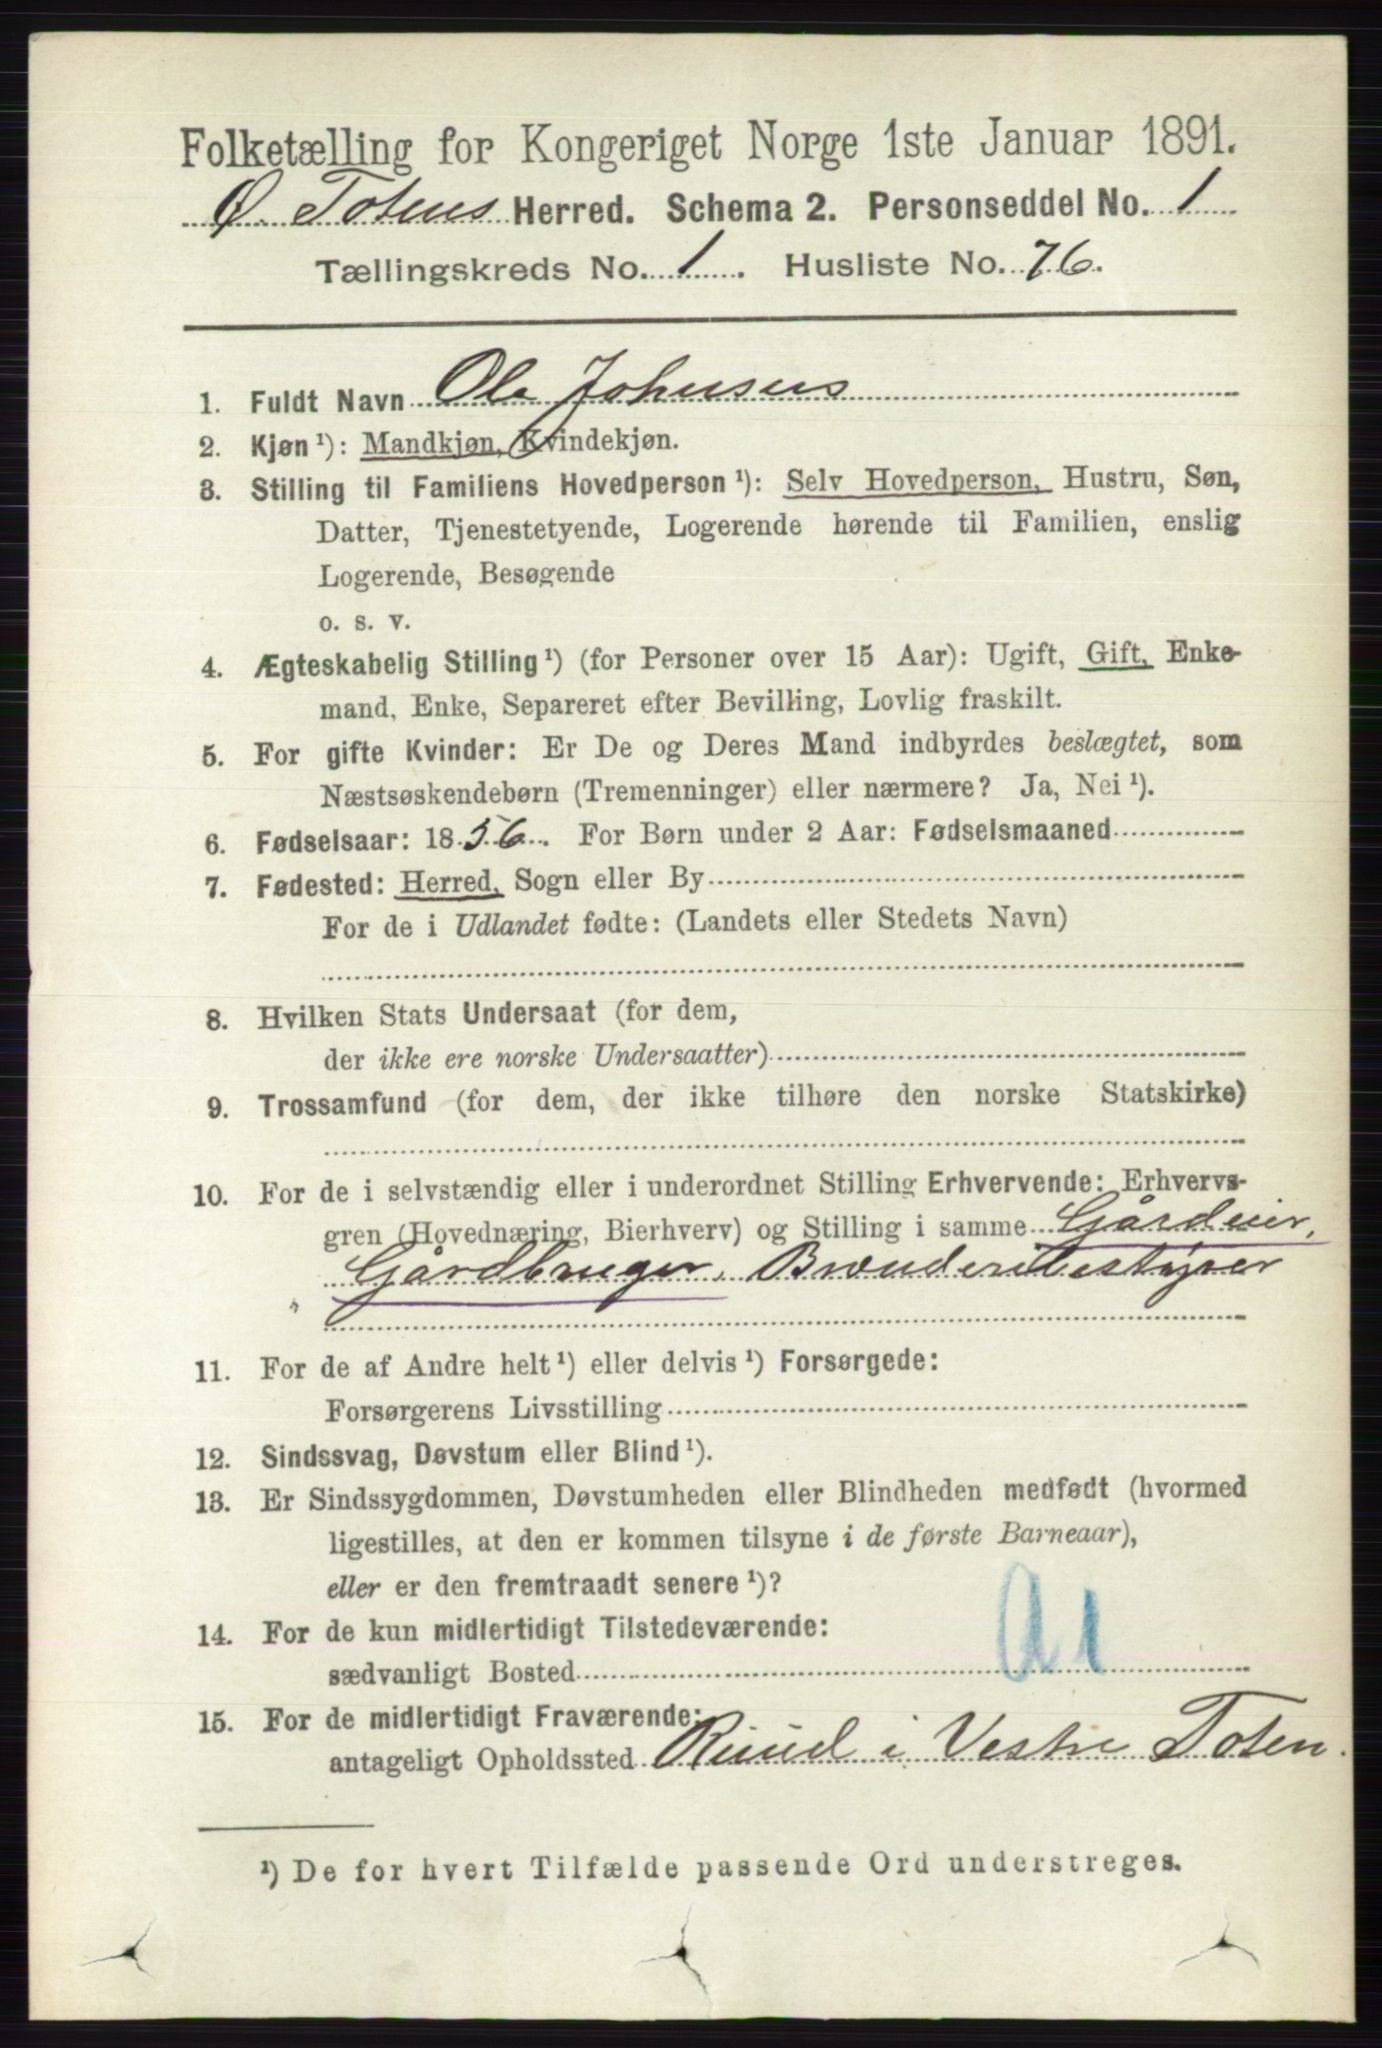 Folketælling for Kongeriget Norge 1ste Januar 1891.
Ø. Totens Herred. Schema 2. Personseddel No. 1
Tællingskreds No. 1. Husliste No. 76.
1. Fuldt Navn Ole Johnsen
2. Kjøn ¹): Mandkjøn, Kvindekjøn.
3. Stilling til Familiens Hovedperson ¹): Selv Hovedperson, Hustru, Søn,
Datter, Tjenestetyende, Logerende hørende til Familien, enslig
Logerende, Besøgende
o. s. v.
4. Ægteskabelig Stilling ¹) (for Personer over 15 Aar): Ugift, Gift, Enke-
mand, Enke, Separeret efter Bevilling, Lovlig fraskilt.
5. For gifte Kvinder: Er De og Deres Mand indbyrdes beslægtet, som
Næstsøskendebørn (Tremenninger) eller nærmere? Ja, Nei ¹).
6. Fødselsaar: 1856. For Børn under 2 Aar: Fødselsmaaned
7. Fødested: Herred, Sogn eller By
For de i Udlandet fødte: (Landets eller Stedets Navn)
8. Hvilken Stats Undersaat (for dem,
der ikke ere norske Undersaatter)
9. Trossamfund (for dem, der ikke tilhøre den norske Statskirke)
10. For de i selvstændig eller i underordnet Stilling Erhvervende: Erhvervs-
gren (Hovednæring, Bierhverv) og Stilling i samme Gårdeier,
Gårdbruger, Brænderibestyrer
11. For de af Andre helt ¹) eller delvis ¹) Forsørgede:
Forsørgerens Livsstilling
12. Sindssvag, Døvstum eller Blind ¹).
13. Er Sindssygdommen, Døvstumheden eller Blindheden medfødt (hvormed
ligestilles, at den er kommen tilsyne i de første Barneaar),
eller er den fremtraadt senere ¹)?
14. For de kun midlertidigt Tilstedeværende:
sædvanligt Bosted
a1
15. For de midlertidigt Fraværende:
antageligt Opholdssted Ruud i Vestre Toten.
¹) De for hvert Tilfælde passende Ord understreges.